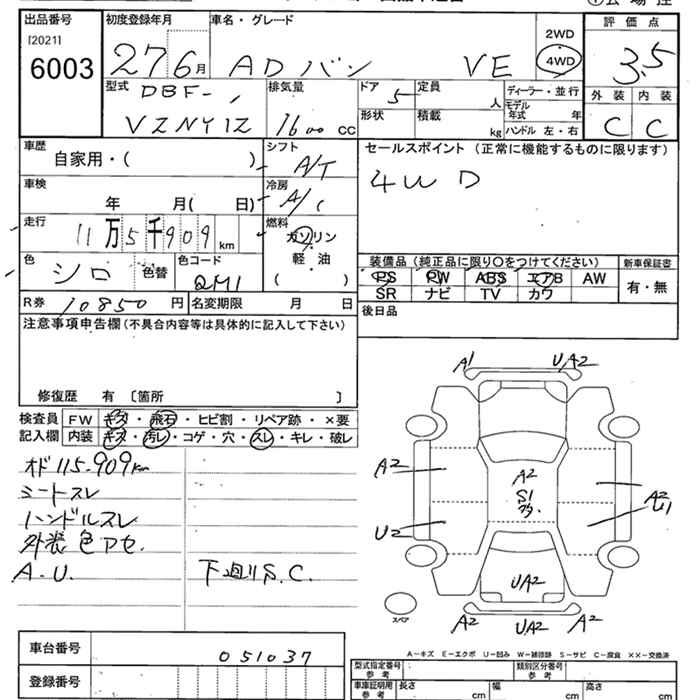 出品番号 初度登録年月 車名・グレード 評価点
[2021]
6003
27 6月 ADバン VE 2WD 4WD 3.5
型式 排気量 ドア 定員 ディーラー・並行 外装 内装
DBF- 5 人 モデル年式 年
VZNY12 1600 CC 形状 積載 kg ハンドル 左・右 C C
車歴 シフト セールスポイント(正常に機能するものに限ります)
自家用・( ) A/T 4WD
車検 冷房
年 月( 日) A/C
走行 燃料
11万5千909km ガソリン
軽・油
( )
装備品(純正品に限り○をつけてください) 新車保証書
色 シロ 色替 色コード QM1
PS PW ABS エアB AW 有・無
SR ナビ TV カワ
R券 10850円 名変期限 月 日 後日品
注意事項申告欄(不具合内容等は具体的に記入して下さい)
修復歴 有〔箇所 〕
検査員 FW キズ・飛石・ヒビ割・リペア跡・×要
記入欄 内装 キズ・汚レ・コゲ・穴・スレ・キレ・破レ
オド115.909km
シートスレ
ハンドルスレ
外装色アセ.
A.U. 下廻りS.C.
A1 UA2
A2 A2 A2
S1
U2 U1
UA2
A2 UA2 A2
スペア
A−キズ E−エクボ U−凹み W−補修跡 S−サビ C−腐食 ××−交換済
車台番号 051037
登録番号
型式指定番号 参考 類別区分番号 参考
車庫証明用 参考 長さ cm 幅 cm 高さ cm